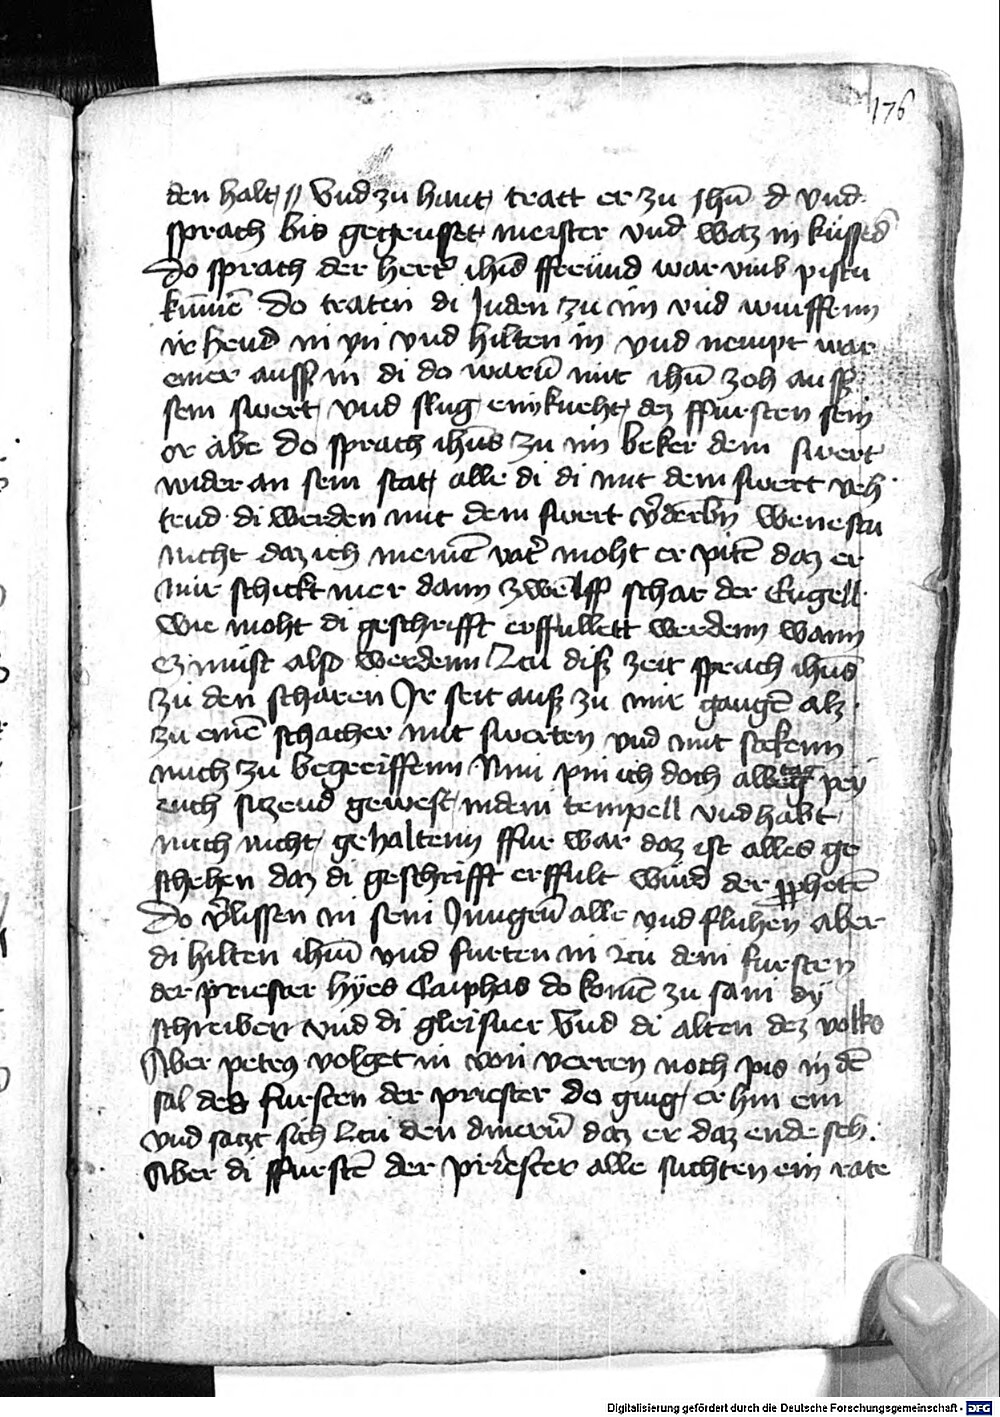 176
den halt // Vnd zu hant tratt er zu jhū d vnd
sprach bis gegrusset meister vnd waz in küssēd
do sprach der herr ihūs ffreund war vmb pistu
kumē do traten di Juden zu im vnd wurffenn
ir hend in yn vnd hilten in vnd nempt war
einer auss in di do warn̄ mit ihū zoh auß
sein swert vnd slug ein kneht dez ffursten sein
or abe do sprach ihūs zu im beker dein swert
wider an sein stat alle di di mit dem swert veh
tend di werden mit dem swert v̄derbn̄ wenestu
nicht daz ich meinē vat̄ moht er pitē daz er
mir schickt mer dann zwelff schar der Engell
wie moht di geschrifft erffullett werdenn wann
ez must also werdenn zcu diß zeit sprach ihūs
zu den scharen Ir seit auß zu mir gangē alz
zu einē schacher mit swerten vnd mit steckenn
mich zu begreiffenn Nun pin ich doch alltag pey
euch sizend gewest in dem tempell vnd habt
mich nicht gehaltenn ffur war daz ist alles ge
schehen daz di geschrifft erffult wurd der pphetē
Do v̄lissen in sein Jungern̄ alle vnd fluhen aber
di hilten ihūm vnd furten in zcu dem fursten
der priester hyes Caiphas do komē zu sam dy
schreiber vnd di gleisner Vnd di alten dez volks
Aber petrus volget in von verren noch pis in dē
sal des fursten der priester do ging er hin ein
vnd satzt sich zcu den dinern̄ daz er daz ende seh.
Aber di ffurstē der priester alle suchten ein rate
Digitalisierung gefördert durch die Deutsche Forschungsgemeinschaft - DFG